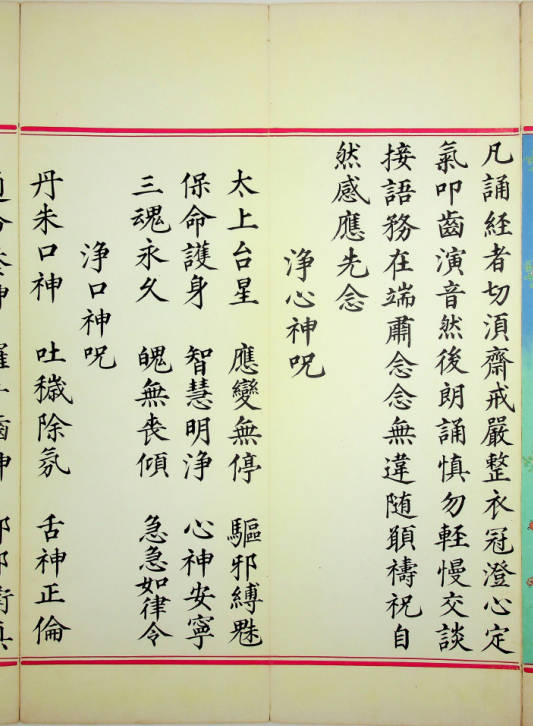 凡誦経者切湏齋戒嚴整衣冠澄心定
氣叩齒演音然後朗誦慎勿輕慢交談
接語務在端肅念念無違随願禱祝自
然感應先念
淨心神呪
太上台星 應變無停 驅邪縛魅
保命護身 智慧明淨 心神安寧
三魂永久 魄無喪傾 急急如律令
淨口神呪
丹朱口神 吐穢除氛 舌神正倫